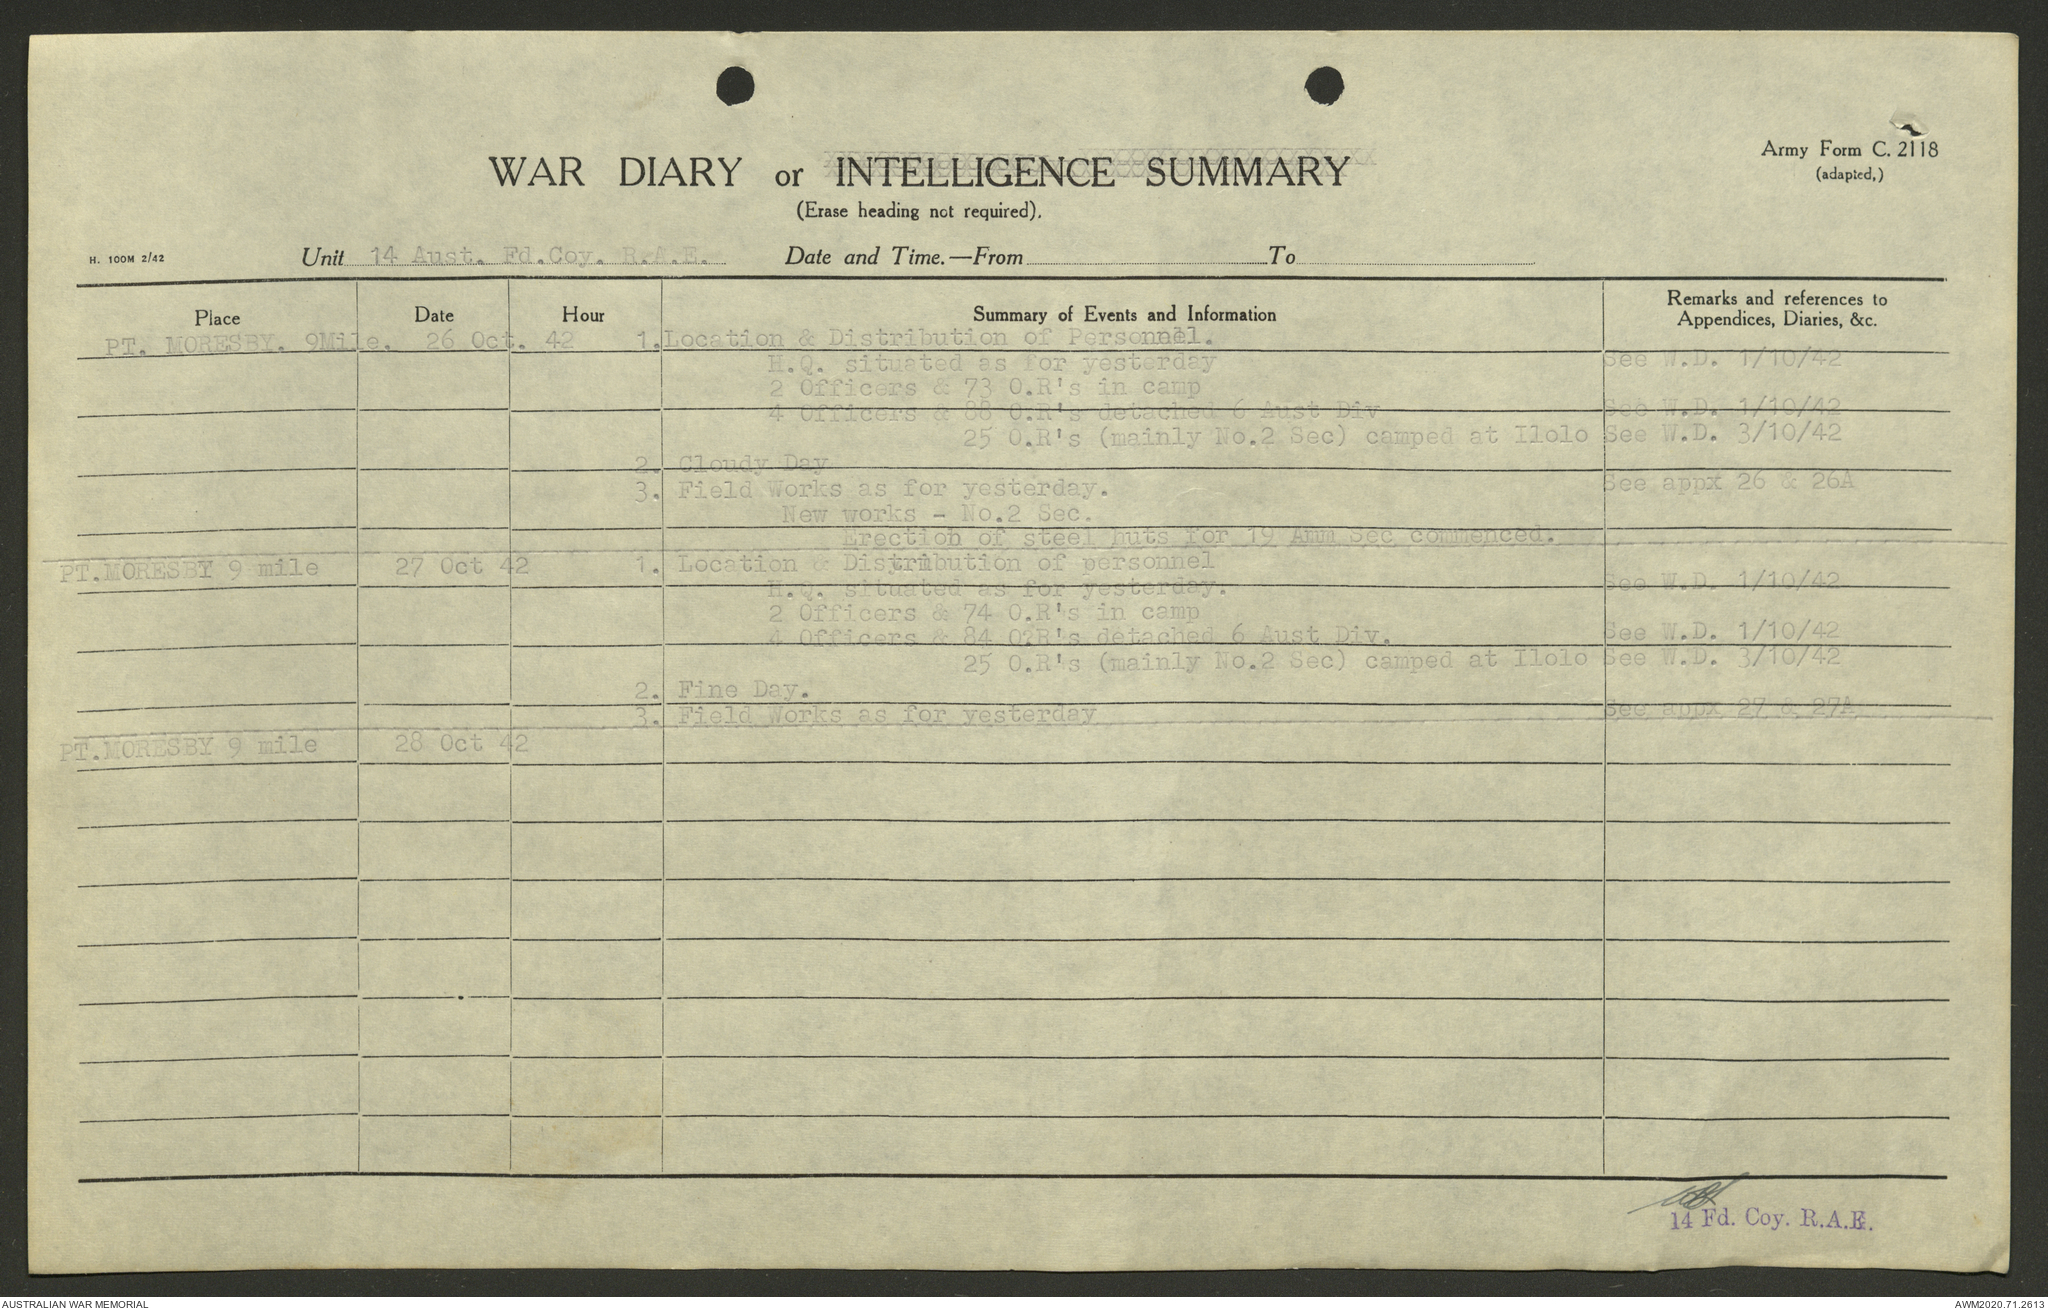 Army Form C. 2118
(adapted,)
WAR DIARY or INTELLIGENCE SUMMARY
(Erase heading not required).
H. 100M 2/42
Unit 14 Aust. Fd.Coy. R.A.E. Date and Time.—From To
Place Date Hour Summary of Events and Information Remarks and references to Appendices, Diaries, &c.
PT. MORESBY. 9Mile. 26 Oct. 42 1. Location & Distribution of Personnel.
H.Q. situated as for yesterday See W.D. 1/10/42
2 Officers & 73 O.R's in camp
4 Officers & 88 O.R's detached 6 Aust Div See W.D. 1/10/42
25 O.R's (mainly No.2 Sec) camped at Ilolo See W.D. 3/10/42
2. Cloudy Day
3. Field Works as for yesterday. See appx 26 & 26A
New works - No.2 Sec.
Erection of steel huts for 19 Amm Sec commenced.
PT.MORESBY 9 mile 27 Oct 42 1. Location & Distribution of personnel
H.Q. situated as for yesterday. See W.D. 1/10/42
2 Officers & 74 O.R's in camp
4 Officers & 84 O?R's detached 6 Aust Div. See W.D. 1/10/42
25 O.R's (mainly No.2 Sec) camped at Ilolo See W.D. 3/10/42
2. Fine Day.
3. Field Works as for yesterday See appx 27 & 27A
PT.MORESBY 9 mile 28 Oct 42
14 Fd. Coy. R.A.E.
AUSTRALIAN WAR MEMORIAL AWM2020.71.2613